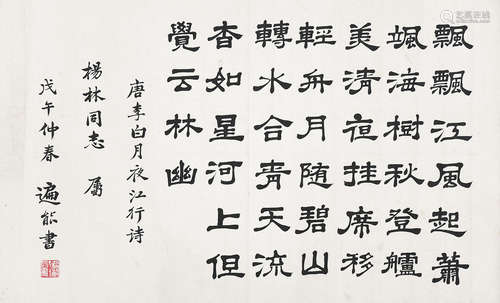 飄飄江風起蕭
颯海樹秋登艫
美清夜挂席移
輕舟月随碧山
轉水合青天流
杳如星河上但
覺云林幽
唐李白月夜江行诗
楊林同志 属
戊午仲春 遍能書